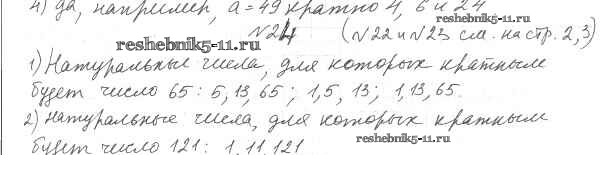 4) да, например, а = 49 кратно 4, 6 и 24
№24 (№22 и №23 см. на стр. 2, 3)
reshebnik5-11.ru
1) Натуральные числа, для которых кратным
будет число 65: 5, 13, 65; 1, 5, 13; 1, 13, 65.
2) Натуральные числа, для которых кратным
reshebnik5-11.ru
будет число 121: 1, 11, 121